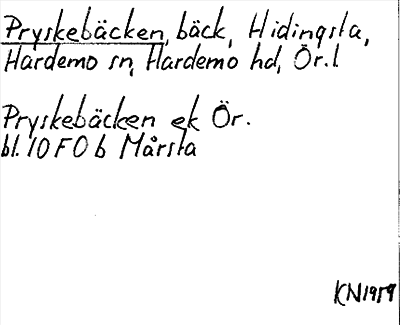 Pryskebäcken, bäck, Hidingsta,
Hardemo sn, Hardemo hd, Ör.l
Pryskebäcken ek Ör.
bl. 10 F 0 b Mårsta
KN1959